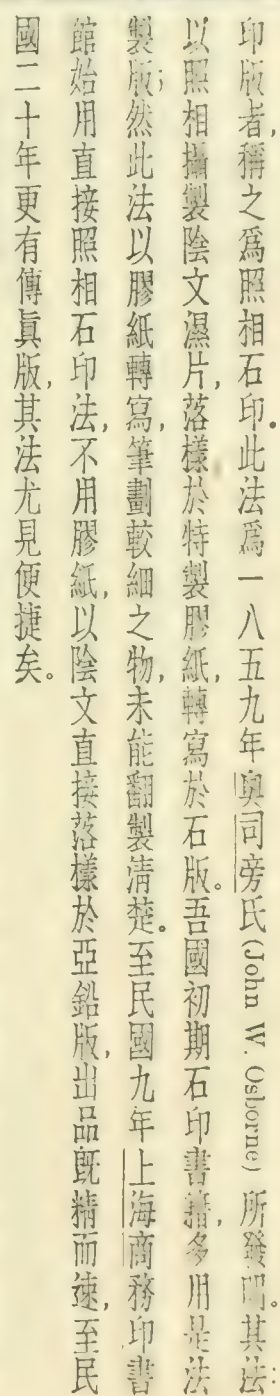 印版者，稱之爲照相石印。此法爲一八五九年奧司旁氏(John W. Osborne)所發明。其法：
以照相攝製陰文濕片，落樣於特製膠紙，轉寫於石版。吾國初期石印書籍，多用是法
製版；然此法以膠紙轉寫，筆劃較細之物，未能翻製清楚。至民國九年上海商務印書
館始用直接照相石印法，不用膠紙，以陰文直接落樣於亞鉛版，出品既精而速，至民
國二十年更有傳眞版，其法尤見便捷矣。